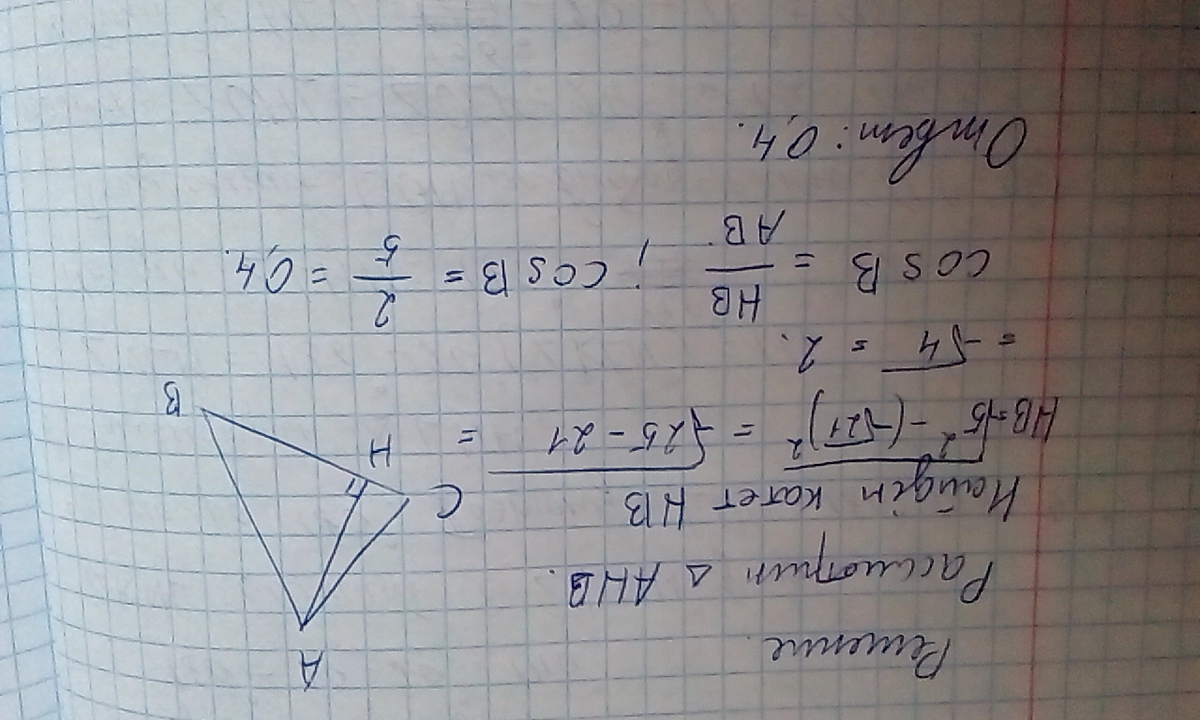 Решение.
Рассмотрим △ AHB.
Найдём катет HB
HB=√5² - (√21)² = √25 - 21 =
= √4 = 2.
cos B = HB/AB ; cos B = 2/5 = 0,4.
Ответ: 0,4.
A
C
H
B